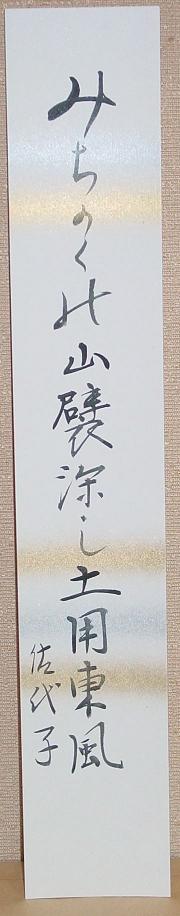 みちのくの山襞深し土用東風
佐代子